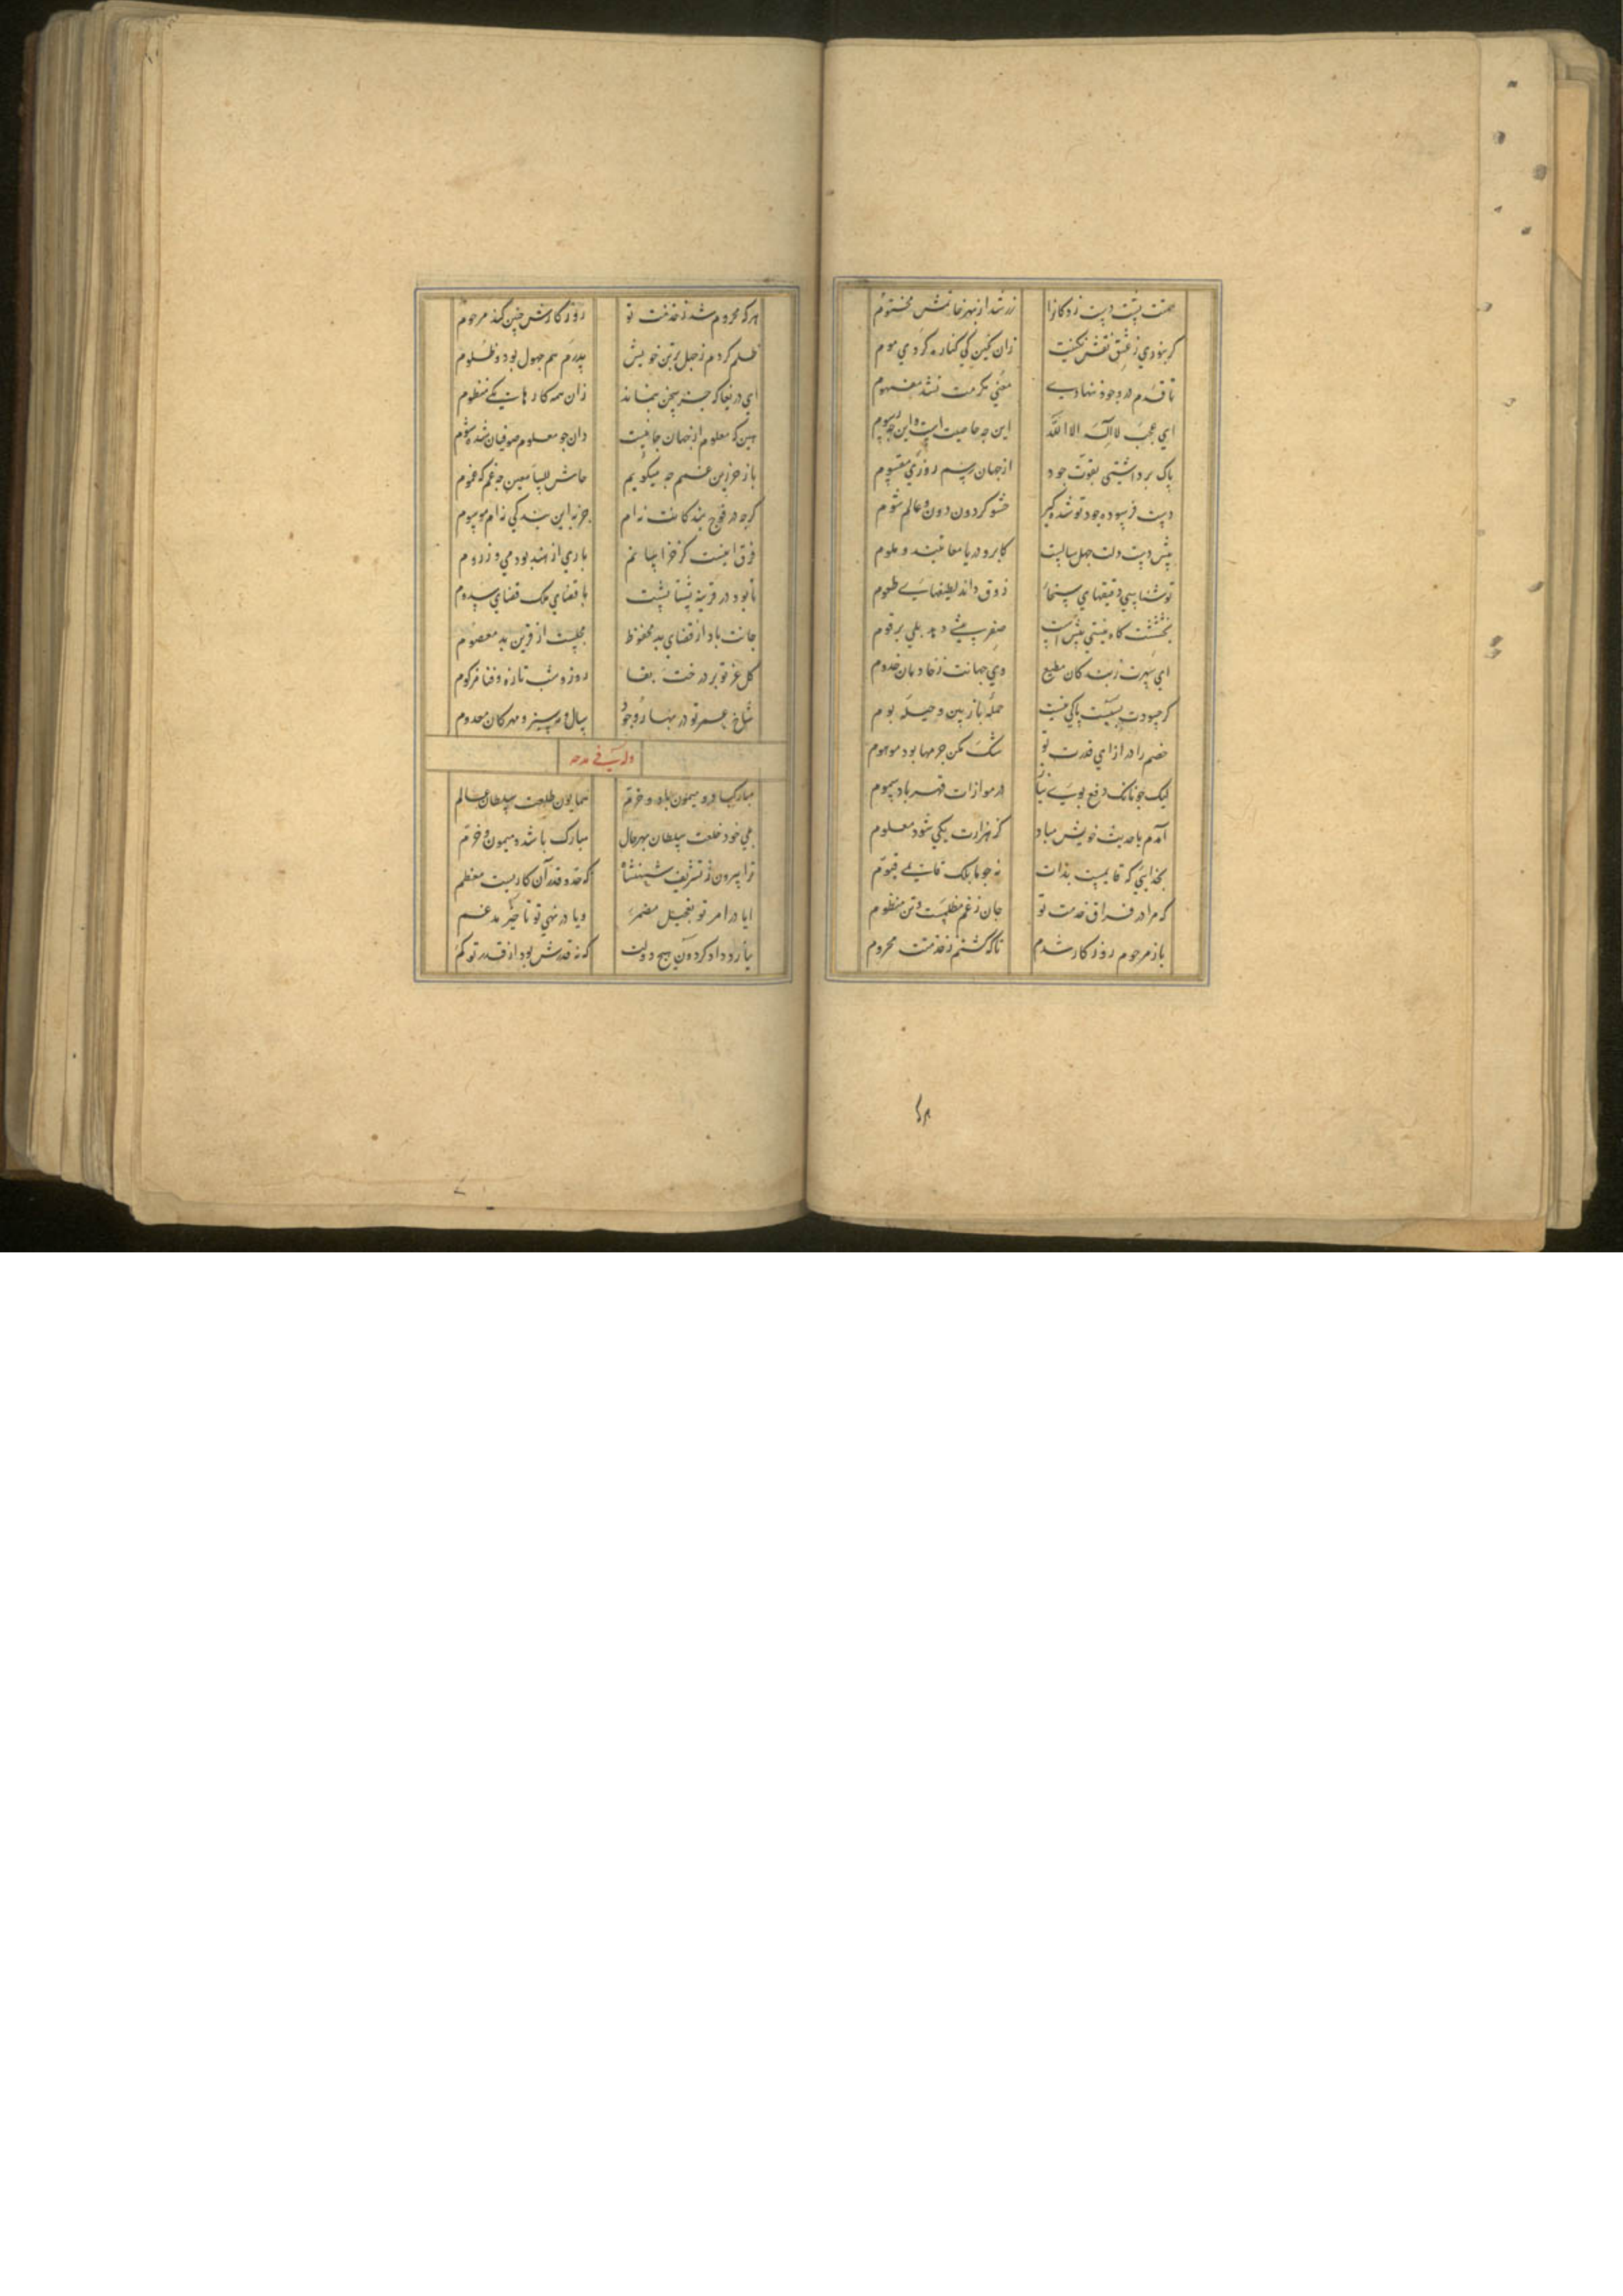 همتت پشت دست زد کانرا زر شد از بهر خاتمش مختوم
گر نبودی ز عشق نقش نگینت زان نگین کی کناره کردی موم
تا قدم در وجود ننهادی معنی مکرمت نشد مفهوم
ای عجب لا اله الا الله این چه خاصیت است و این چه رسوم
پاک برداشتی بقوت جود از جهان رسم روزی مقسوم
دست فرسوده جود تو شده گیر حشو گردون دون و عالم شوم
پیش دست و دلت چهل سالست کابر و دریا معاتبند و ملوم
تو شناسی دقیقهای سخا ذوق داند لطیفهای طعوم
بخششت گاه نیستی بیش است صفر بیشی دهد بلی برقوم
ای سپهرت ز بندگان مطیع وی جهانت ز خادمان خدوم
گر حسودت بسیست باکی نیست حمله باز بین و حیله بوم
خصم را در ازای قدرت تو شک مکن جرمها بود موهوم
لیک چونانک دفع بوی پیاز در موازات قهر باد سموم
آمدم با حدیث خویش مباد که هزارت یکی شود معلوم
بخدایی که قایمست بذات نه چو ما بلک قایمی قیوم
که مرا در فراق خدمت تو جان ز غم مظلمست و تن مظلوم
باز مرحوم روزگار شدم تا که گشتم ز خدمتت محروم
هر که محروم شد ز خدمت تو روزگارش چنین کند مرحوم
ظلم کردم ز جهل بر تن خویش پدرم هم جهول بود و ظلوم
ای دریغا که جز سخن بنماند زان همه کارهات یکی منظوم
بین که معلوم از جهان جانیست وان چو معلوم صوفیان شده شوم
باز خر زین غمم چه میگویم حاش للسامعین چه غم که غموم
گر چه در فوج بندگانت نه ام جز به این بندگی نه ام موسوم
فرق اینست کز خراسانم باری از هند بودمی وز روم
تا بود در قرینه پشتاپشت با قضای ملک قضای سدوم
جانت باد از قضای بد محفوظ مجلست از قرین بد معصوم
گل عز تو بر درخت بقا روز و شب تازه و فنا مزکوم
شاخ عمر تو در بهار وجود سال و مه سبز و مهرگان معدوم
وله ایضا فی مدحه
مبارک باد و میمون باد و خرم همایون طلعت سلطان عالم
بلی خود خلعت سلطان بهر حال مبارک باشد و میمون و خرم
ترا بیرون ز تشریف شهنشاه که حد و قدر آن کاریست معظم
ایا در امر تو تعجیل مضمر ویا در نهی تو تاخیر مدغم
نیارد داد گردون هیچ دولت که نه قدرش بود از قدر تو کم